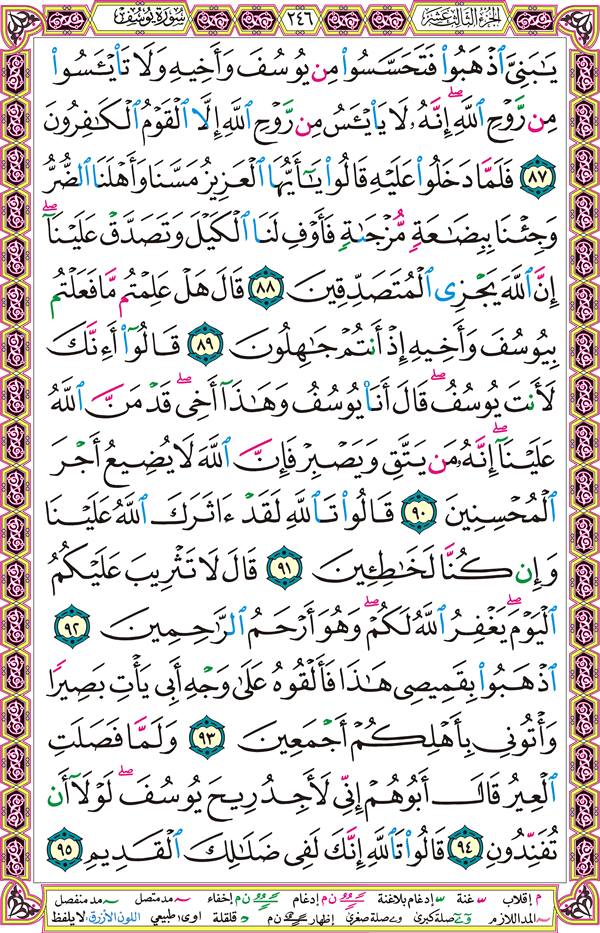 الجزء الثالث عشر ٢٤٦ سورة يوسف
يَٰبَنِىَّ ٱذْهَبُوا۟ فَتَحَسَّسُوا۟ مِن يُوسُفَ وَأَخِيهِ وَلَا تَا۟يْـَٔسُوا۟
مِن رَّوْحِ ٱللَّهِ ۖ إِنَّهُۥ لَا يَا۟يْـَٔسُ مِن رَّوْحِ ٱللَّهِ إِلَّا ٱلْقَوْمُ ٱلْكَٰفِرُونَ
٨٧ فَلَمَّا دَخَلُوا۟ عَلَيْهِ قَالُوا۟ يَٰٓأَيُّهَا ٱلْعَزِيزُ مَسَّنَا وَأَهْلَنَا ٱلضُّرُّ
وَجِئْنَا بِبِضَٰعَةٍ مُّزْجَىٰةٍ فَأَوْفِ لَنَا ٱلْكَيْلَ وَتَصَدَّقْ عَلَيْنَآ ۖ
إِنَّ ٱللَّهَ يَجْزِى ٱلْمُتَصَدِّقِينَ ٨٨ قَالَ هَلْ عَلِمْتُم مَّا فَعَلْتُم
بِيُوسُفَ وَأَخِيهِ إِذْ أَنتُمْ جَٰهِلُونَ ٨٩ قَالُوٓا۟ أَءِنَّكَ
لَأَنتَ يُوسُفُ ۖ قَالَ أَنَا۠ يُوسُفُ وَهَٰذَآ أَخِى ۖ قَدْ مَنَّ ٱللَّهُ
عَلَيْنَآ ۖ إِنَّهُۥ مَن يَتَّقِ وَيَصْبِرْ فَإِنَّ ٱللَّهَ لَا يُضِيعُ أَجْرَ
ٱلْمُحْسِنِينَ ٩٠ قَالُوا۟ تَٱللَّهِ لَقَدْ ءَاثَرَكَ ٱللَّهُ عَلَيْنَا
وَإِن كُنَّا لَخَٰطِـِٔينَ ٩١ قَالَ لَا تَثْرِيبَ عَلَيْكُمُ
ٱلْيَوْمَ ۖ يَغْفِرُ ٱللَّهُ لَكُمْ ۖ وَهُوَ أَرْحَمُ ٱلرَّٰحِمِينَ ٩٢
ٱذْهَبُوا۟ بِقَمِيصِى هَٰذَا فَأَلْقُوهُ عَلَىٰ وَجْهِ أَبِى يَأْتِ بَصِيرًا
وَأْتُونِى بِأَهْلِكُمْ أَجْمَعِينَ ٩٣ وَلَمَّا فَصَلَتِ
ٱلْعِيرُ قَالَ أَبُوهُمْ إِنِّى لَأَجِدُ رِيحَ يُوسُفَ ۖ لَوْلَآ أَن
تُفَنِّدُونِ ٩٤ قَالُوا۟ تَٱللَّهِ إِنَّكَ لَفِى ضَلَٰلِكَ ٱلْقَدِيمِ ٩٥
م إقلاب غنة إدغام بلاغنة ن م إدغام ن م إخفاء مد متصل مد منفصل
المد اللازم صلة كبرى صلة صغرى إظهار ن م اوى: طبيعي قلقلة اللون الأزرق: لا يلفظ